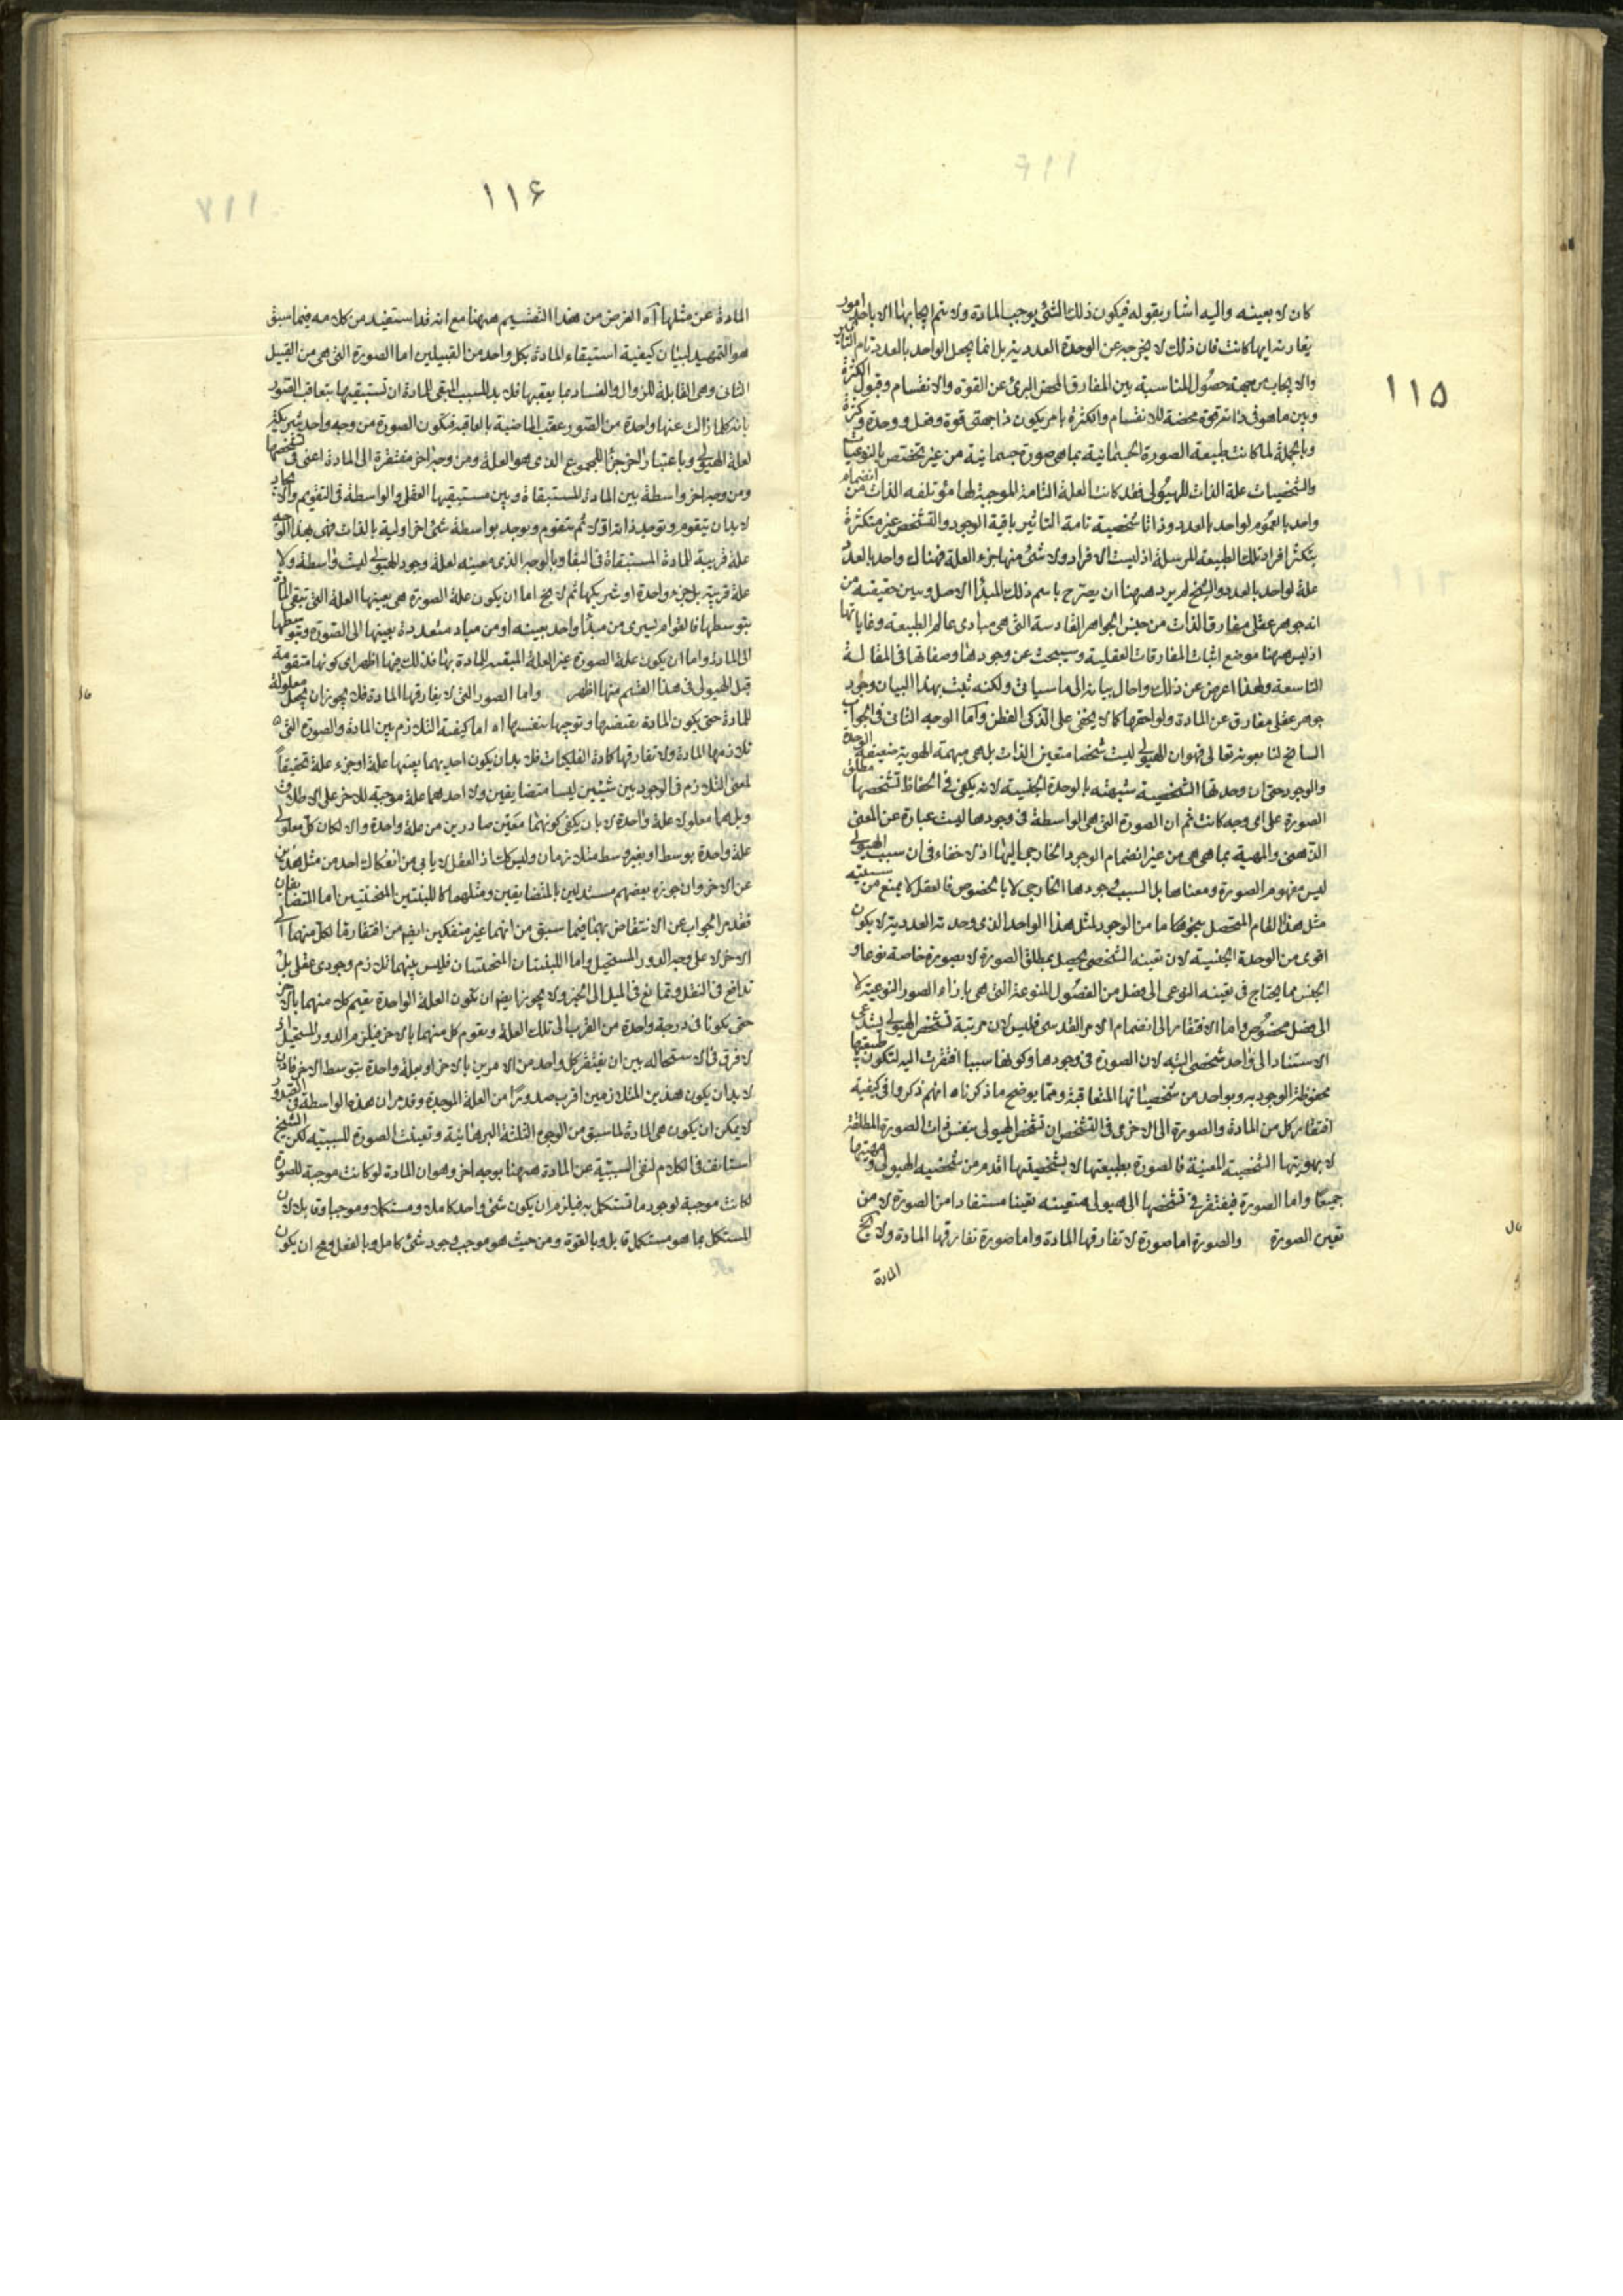 ١١٥
كان لا بعينه واليه اشار بقوله فيكون ذلك الشئ يوجب المادة ولا يتم ايجابها الا باحد امور
يقارنه ايها كانت فان ذلك لا يخرجه عن الوحدة العددية بل انما يجعل الواحد بالعدد تام التاثير
والايجاب من جهة حصول المناسبة بين المفارق المحض البرئ عن القوة والانقسام وقبول الكثرة
وبين ما هو فى ذاته قوة محضة للانقسام والكثرة بامر يكون ذا جهتى قوة وفعل ووحدة وكثرة
وبالجملة لما كانت طبيعة الصورة الجسمانية بما هى صورة جسمانية من غير تخصص بالنوعيات
والشخصيات علة الذات للهيولى فقد كانت العلة التامة الموجبة لها مؤتلفه الذات من انضمام
واحد بالعموم لواحد بالعدد وذاتا شخصية تامة التاثير باقية الوجود والتشخص غير متكثرة
بتكثر افراد تلك الطبيعة المرسلة اذ ليست الافراد ولا شئ منها جزء العلة فهناك واحد بالعدد
علة لواحد بالعدد والشيخ لم يرد ههنا ان يصرح باسم ذلك المبدأ الاصل وبين حقيقته من
انه جوهر عقلى مفارق الذات من جنس الجواهر القادسة التى هى مبادى عالم الطبيعة وغاياتها
اذ ليس ههنا موضع اثبات المفارقات العقلية وسيبحث عن وجودها وصفاتها فى المقالة
التاسعة ولهذا اعرض عن ذلك واحال بيانه الى ما سياتى ولكنه ثبت بهذا البيان وجود
جوهر عقلى مفارق عن المادة ولواحقها كما لا يخفى على الذكى الفطن واما الوجه الثانى فى الجواب
السانح لنا بعونه تعالى فهو ان الهيولى ليست شخصا متعين الذات بل هى مبهمة الهوية ضعيفة الوحدة
والوجود حتى ان وحدتها الشخصية شبيهته بالوحدة الجنسية لانه يكفى فى انحفاظ تشخصها مطلق
الصورة على اى وجه كانت ثم ان الصورة التى هى الواسطة فى وجودها ليست عبارة عن المعنى
الذهنى والمهية بما هى هى من غير انضمام الوجود الخارجى اليها اذ لا خفاء فى ان سبب الهيولى
ليس مفهوم الصورة ومعناها بل السبب وجودها الخارجى لا بالخصوص فالعقل لا يمنع من سببيته
مثل هذا القام المتحصل بنحو ما من الوجود لمثل هذا الواحد الذى وحدته العددية لا يكون
اقوى من الوحدة الجنسية لان تعينه الشخصى يحصل بمطلق الصورة لا بصورة خاصة نوعا او
الجنس مما يحتاج فى تعينه النوعى الى فصل من الفصول المنوعة التى هى بازاء الصور النوعية لا
الى فصل مخصوص واما الافتقار الى انضمام الامر القدسى فليس لان مرتبة تشخص الهيولى يستدعى
الاستناد الى واحد شخصى البته لان الصورة فى وجودها وكونها سببا افتقرت اليه لتكون طبيعتها
محفوظة الوجود به وبواحد من شخصياتها المتعاقبة ومما يوضح ما ذكرناه انهم ذكروا فى كيفية
افتقار كل من المادة والصورة الى الاخرى فى التشخص ان تشخص الهيولى بنفس ذات الصورة المطلقة
لا بهويتها الشخصية المعينة فالصورة بطبيعتها لا بشخصيتها اقدم من شخصية الهيولى ومهيتها
جميعا واما الصورة فيفتقر فى تشخصها الى هيولى متعينه تعينا مستفادا من الصورة لا من
تعين الصورة والصورة اما صورة لا تفارقها المادة واما صورة تفارقها المادة ولا يخ
المادة
١١۶
المادة عن مثلها آه الغرض من هذا التقسيم ههنا مع انه قد استفيد من كلامه فيما سبق
هو التمهيد لبيان كيفية استبقاء المادة بكل واحد من القبيلين اما الصورة التى هى من القبيل
الثانى وهى القابلة للزوال والفساد بما يعقبها فلا بد للسبب المبقى للمادة ان تستبقيها بتعاقب الصور
بانه كلما زالت عنها واحدة من الصور عقب الماضية بالعاقبة فتكون الصورة من وجه واحد شريكة
لعلة الهيولى وباعتبار اخر جزأ للمجموع الذى هو العلة ومن وجه اخر مفتقرة الى المادة اعنى فى تشخصها
ومن وجه اخر واسطة بين المادة المستبقاة وبين مستبقيها العقل والواسطة فى التقويم والايجاد
لا بد ان يتقوم ويوجد ذاته اولا ثم يتقوم ويوجد بواسطة شئ اخر اولية بالذات فهى بهذا الوجه
علة قريبة للمادة المستبقاة فى البقاء وبالوجه الذى بعينه لعلة وجود الهيولى ليست واسطة ولا
علة قريبة بل جزء واحدة او شريكها ثم لا يخ اما ان يكون علة الصورة هى بعينها العلة التى تبقى المادة
بتوسطها فالقوام يسرى من مبدأ واحد بعينه او من مباد متعددة بعينها الى الصورة وبتوسطها
الى المادة واما ان يكون علة الصورة غير العلة المبقية للمادة بها فذلك فيها اظهر اى كونها متقومة
قبل الهيولى فى هذا القسم منها اظهر واما الصور التى لا يفارقها المادة فلا يجوز ان يجعل معلولة
للمادة حتى يكون المادة يقتضيها ويوجبها بنفسها اه اما كيفية التلازم بين المادة والصورة التى
تلازمها المادة ولا تفارقها كمادة الفلكيات فلا بد ان يكون احديهما بعينها علة او جزء علة تحقيقا
لمعنى التلازم فالوجود بين شيئين ليسا متضايفين ولا احدهما علة موجبة للاخر على الاطلاق
وبل هما معلولا علة واحدة لا بان يكفى كونهما معين صادرين من علة واحدة والا لكان كل معلولى
علة واحدة بوسط او بغير وسط متلازمان وليس كك اذ العقل لا يابى من انفكاك احد من مثل هذين
عن الاخر وان جوزه بعضهم مستدلين بالمتضايفين ومثلهما كاللبنتين المنحنيتين اما المتضايفان
فقد مر الجواب عن الانتقاض بهما فيما سبق من انهما غير منفكين ايضا من افتقار ما لكل منهما الى
الاخر لا على وجه الدور المستحيل واما اللبنتان المنحنيتان فليس بينهما تلازم وجودى عقلى بل
تدافع فى الثقل وتمانع فى الميل الى الحيز ولا يجوز ايضا ان يكون العلة الواحدة يقيم كلا منهما بالاخر
حتى يكونا فى درجة واحدة من القرب الى تلك العلة ويقوم كل منهما بالاخر فيلزم الدور المستحيل اذ
لا فرق فى الاستحاله بين ان يفتقر كل واحد من الامرين بالاخر او بعلة واحدة بتوسط الاخر فاذن
لا بد ان يكون هذين المتلازمين اقرب صدورا من العلة الموحدة وقد مر ان هذه الواسطة فى الصدور
لا يمكن ان يكون هى المادة لما سبق من الوجوه الثلثة البرهانية وتعينت الصورة للسببية لكن الشيخ
استانف فى الكلام لنفى السببية عن المادة ههنا بوجه اخر وهو ان المادة لو كانت موجبة للصورة
لكانت موجبة لوجود ما تستكمل به فيلزم ان يكون شئ واحد كاملا ومستكملا وموجبا وقابلا لان
المستكمل بما هو مستكمل قابل وبالقوة ومن حيث هو موجب وجود شئ كامل وبالفعل وح ان يكون